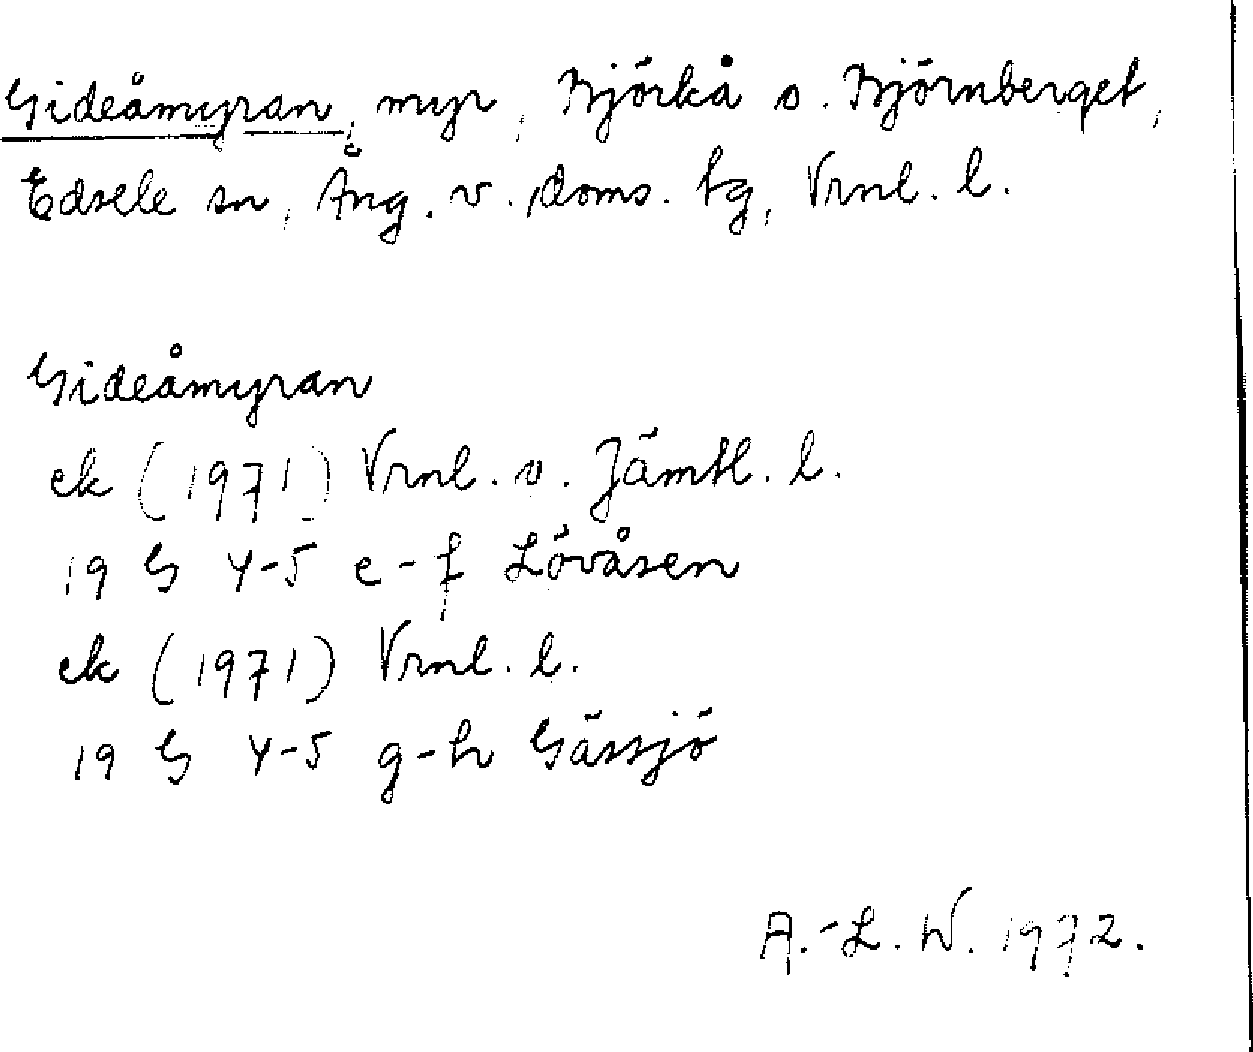 Gideåmyran, myr, Björkå o. Björnberget,
Edsele sn, Ång. v. doms. tg, Vrnl. l.
Gideåmyran
ek (1971) Vrnl. o. Jämtl. l.
19 G 4-5 e-f Lövåsen
ek (1971) Vrnl. l.
19 G 4-5 g-h Gässjö
A.-L. W. 1972.